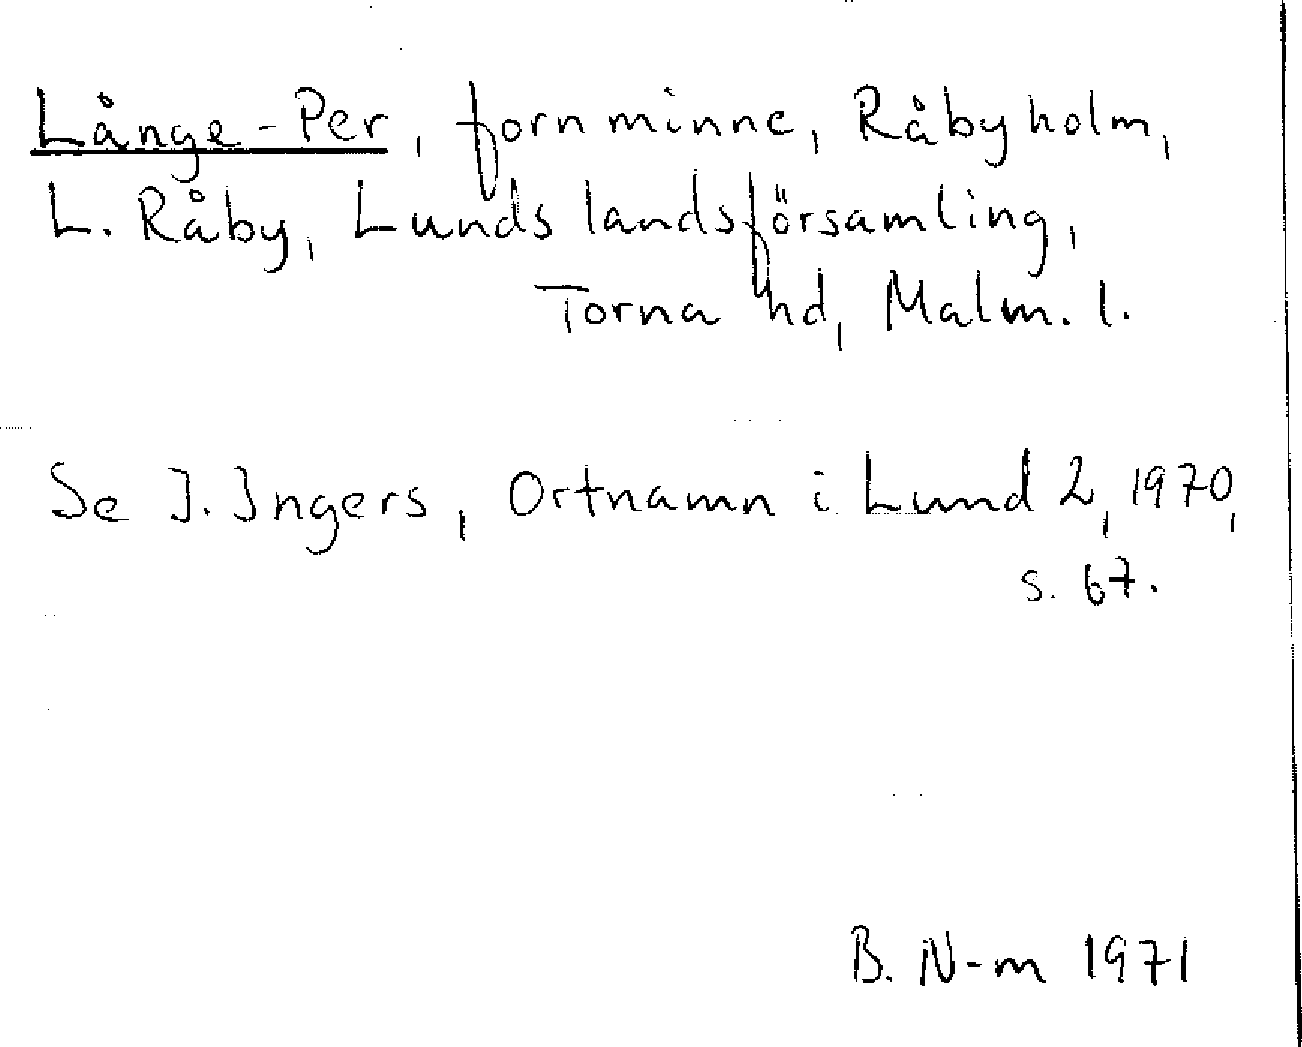 Långe-Per, fornminne, Råbyholm,
L. Råby, Lunds landsförsamling,
Torna hd, Malm. l.
Se I. Ingers, Ortnamn i Lund 2, 1970,
s. 67.
B. N-m 1971